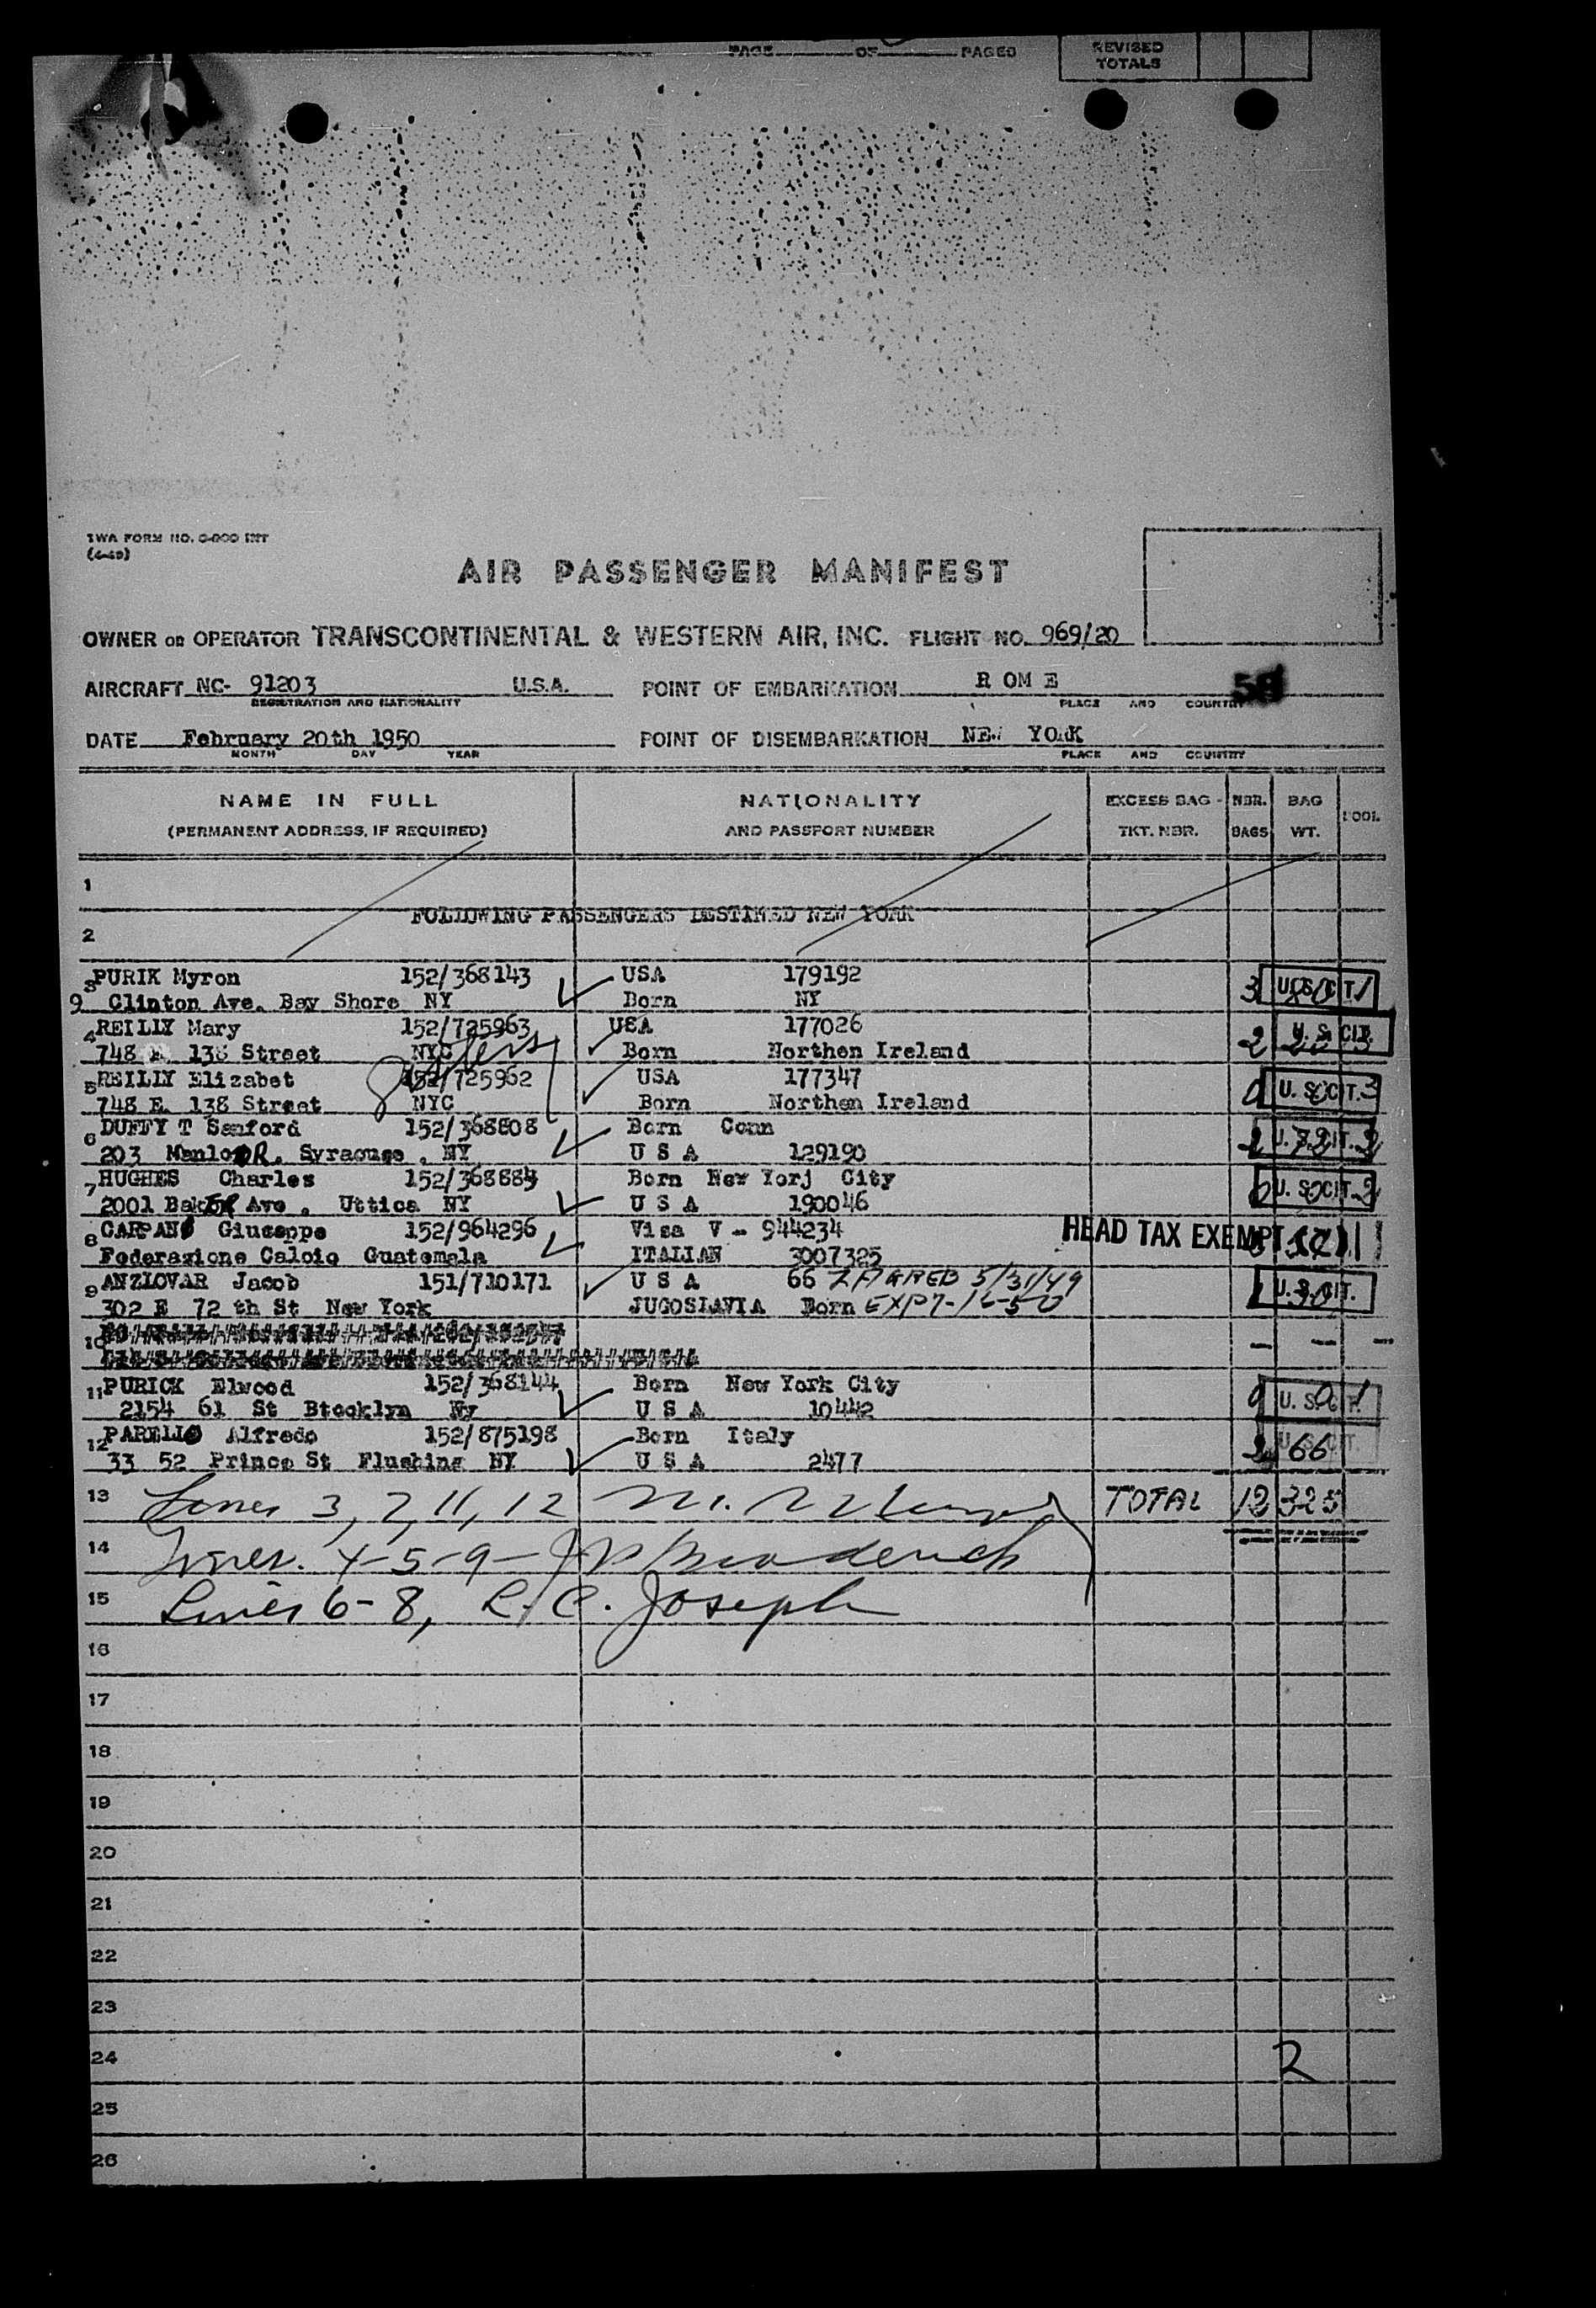 PAGE OF PAGES
REVISED
TOTALS
TWA FORM NO.
AIR PASSENGER MANIFEST
OWNER OR OPERATOR TRANSCONTINENTAL & WESTERN AIR, INC. FLIGHT NO. 969/20
AIRCRAFT NC- 91203 U.S.A. POINT OF EMBARKATION R OM E 58
REGISTRATION AND NATIONALITY PLACE AND COUNTRY
DATE February 20th 1950 POINT OF DISEMBARKATION NEW YORK
MONTH DAY YEAR PLACE AND COUNTRY
NAME IN FULL NATIONALITY EXCESS BAG - NBR. BAG
(PERMANENT ADDRESS, IF REQUIRED) AND PASSPORT NUMBER TKT. NBR. BAGS WT. POOL
1
FOLLOWING PASSENGERS DESTINED NEW YORK
2
3 PURIK Myron 152/368143 USA 179192
9 Clinton Ave. Bay Shore NY Born NY 3 U.S. CIT. 1
4 REILLY Mary 152/725963 USA 177026
748 E. 138 Street NYC Born Northen Ireland 2 U.S. CIT.
5 REILLY Elizabet 152/725962 USA 177347
748 E. 138 Street NYC Born Northen Ireland 0 U.S. CIT. 3
6 DUFFY T Sanford 152/368808 Born Conn
203 Manlo R. Syracuse . NY U S A 129190 2 U.S. CIT. 2
7 HUGHES Charles 152/368884 Born New Yorj City
2001 BakER Ave . Uttica NY U S A 190046 0 U.S. CIT. 2
8 CARPANO Giuseppe 152/964296 Visa V - 944234 HEAD TAX EXEMPT
Federazione Calcio Guatemala ITALIAN 3007325
9 ANZLOVAR Jacob 151/710171 U S A 66 ZAGREB 5/31/49
302 E 72 th St New York JUGOSLAVIA Born EXP 7-16-50 1 U.S. CIT.
10 — — —
11 PURICK Elwood 152/368144 Born New York City
2154 61 St Btooklyn Ny U S A 10442 0 U.S. CIT. 1
12 PARELLO Alfredo 152/875198 Born Italy U.S. CIT.
33 52 Prince St Flushing NY U S A 2477 2 66
13 Lines 3, 7, 11, 12 TOTAL 12 325
14 Lines. 4-5-9-
15 Lines 6-8, L. C. Joseph
16
17
18
19
20
21
22
23
24 2
25
26